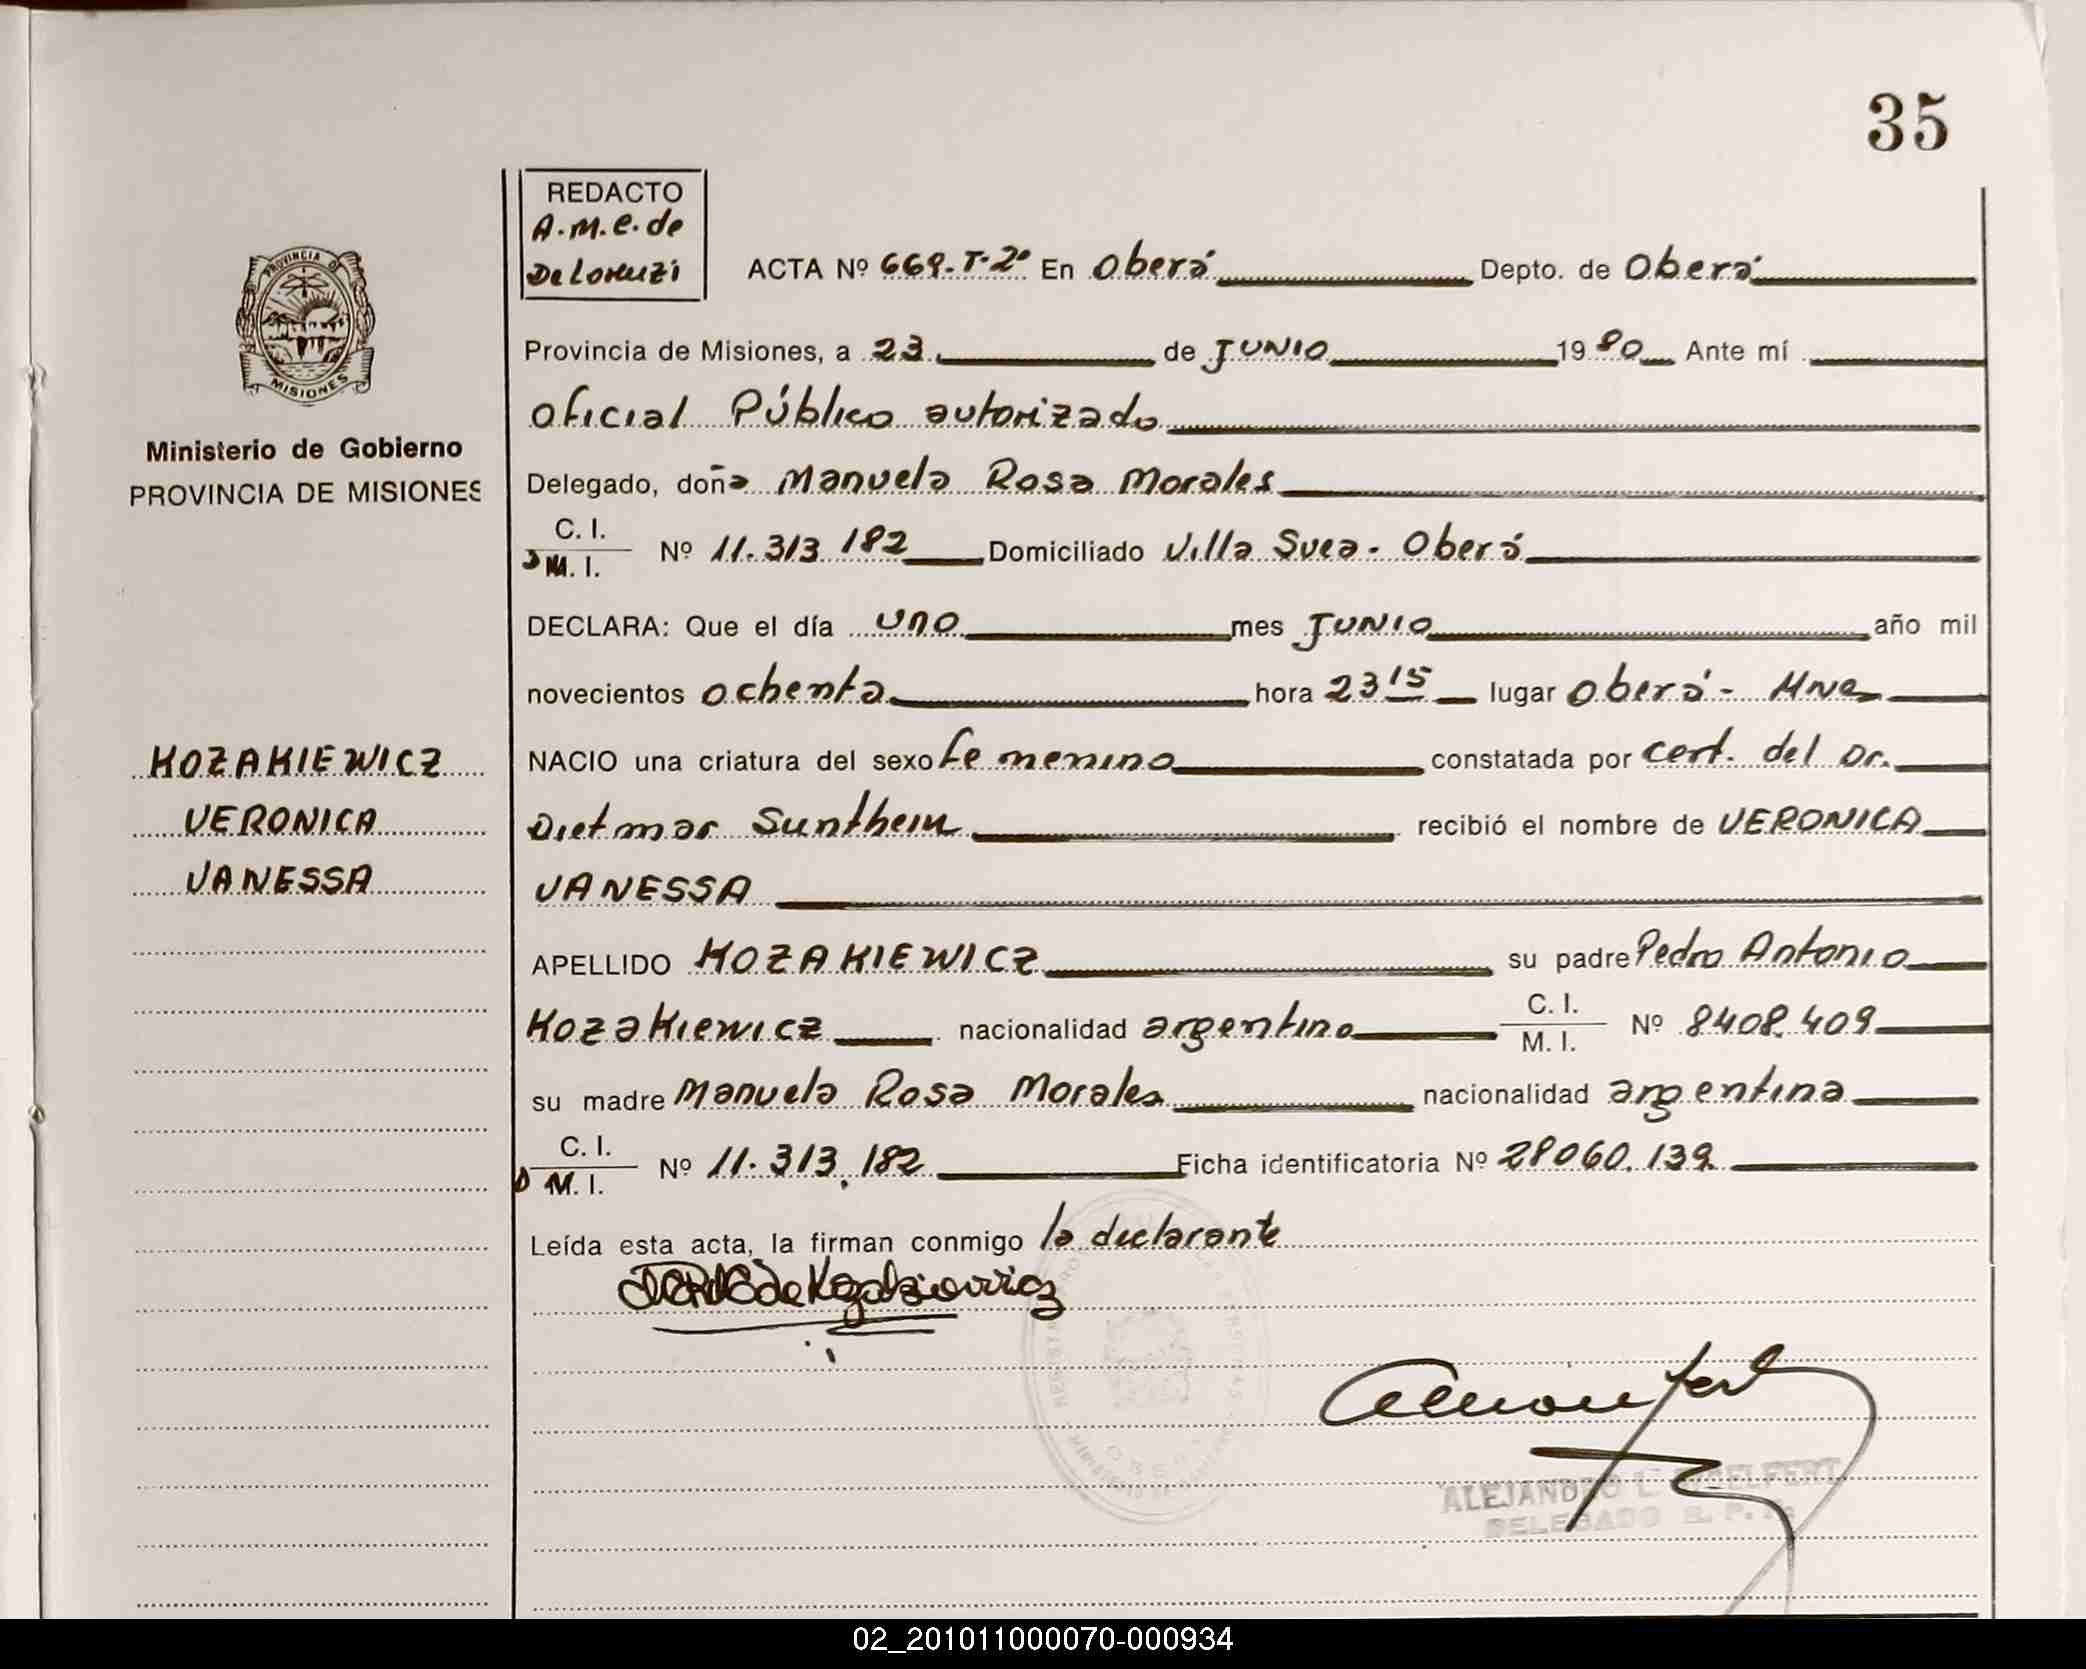 35
REDACTO
A.M.E. de
De Lorenzi
ACTA Nº 669-T-2º En Oberá Depto. de Oberá
PROVINCIA DE
MISIONES
Provincia de Misiones, a 23 de JUNIO 1980 Ante mí
Oficial Público autorizado
Ministerio de Gobierno
PROVINCIA DE MISIONES
Delegado, doña Manuela Rosa Morales
C. I.
D M. I. Nº 11.313.182 Domiciliado Villa Svea - Oberá
DECLARA: Que el día uno mes JUNIO año mil
novecientos ochenta hora 23 15 lugar Oberá - Mnes
KOZAKIEWICZ
VERONICA
VANESSA
NACIO una criatura del sexo femenino constatada por cert. del Dr.
Dietmar Sunthein recibió el nombre de VERONICA
VANESSA
APELLIDO KOZAKIEWICZ su padre Pedro Antonio
Kozakiewicz nacionalidad argentino C. I. M. I. Nº 8408.409
su madre Manuela Rosa Morales nacionalidad argentina
C. I.
D M. I. Nº 11.313.182 Ficha identificatoria Nº 28060.139
Leída esta acta, la firman conmigo la declarante
de Kozakiewicz
ALEJANDRO L.
DELEGADO R. P. P.
02_201011000070-000934